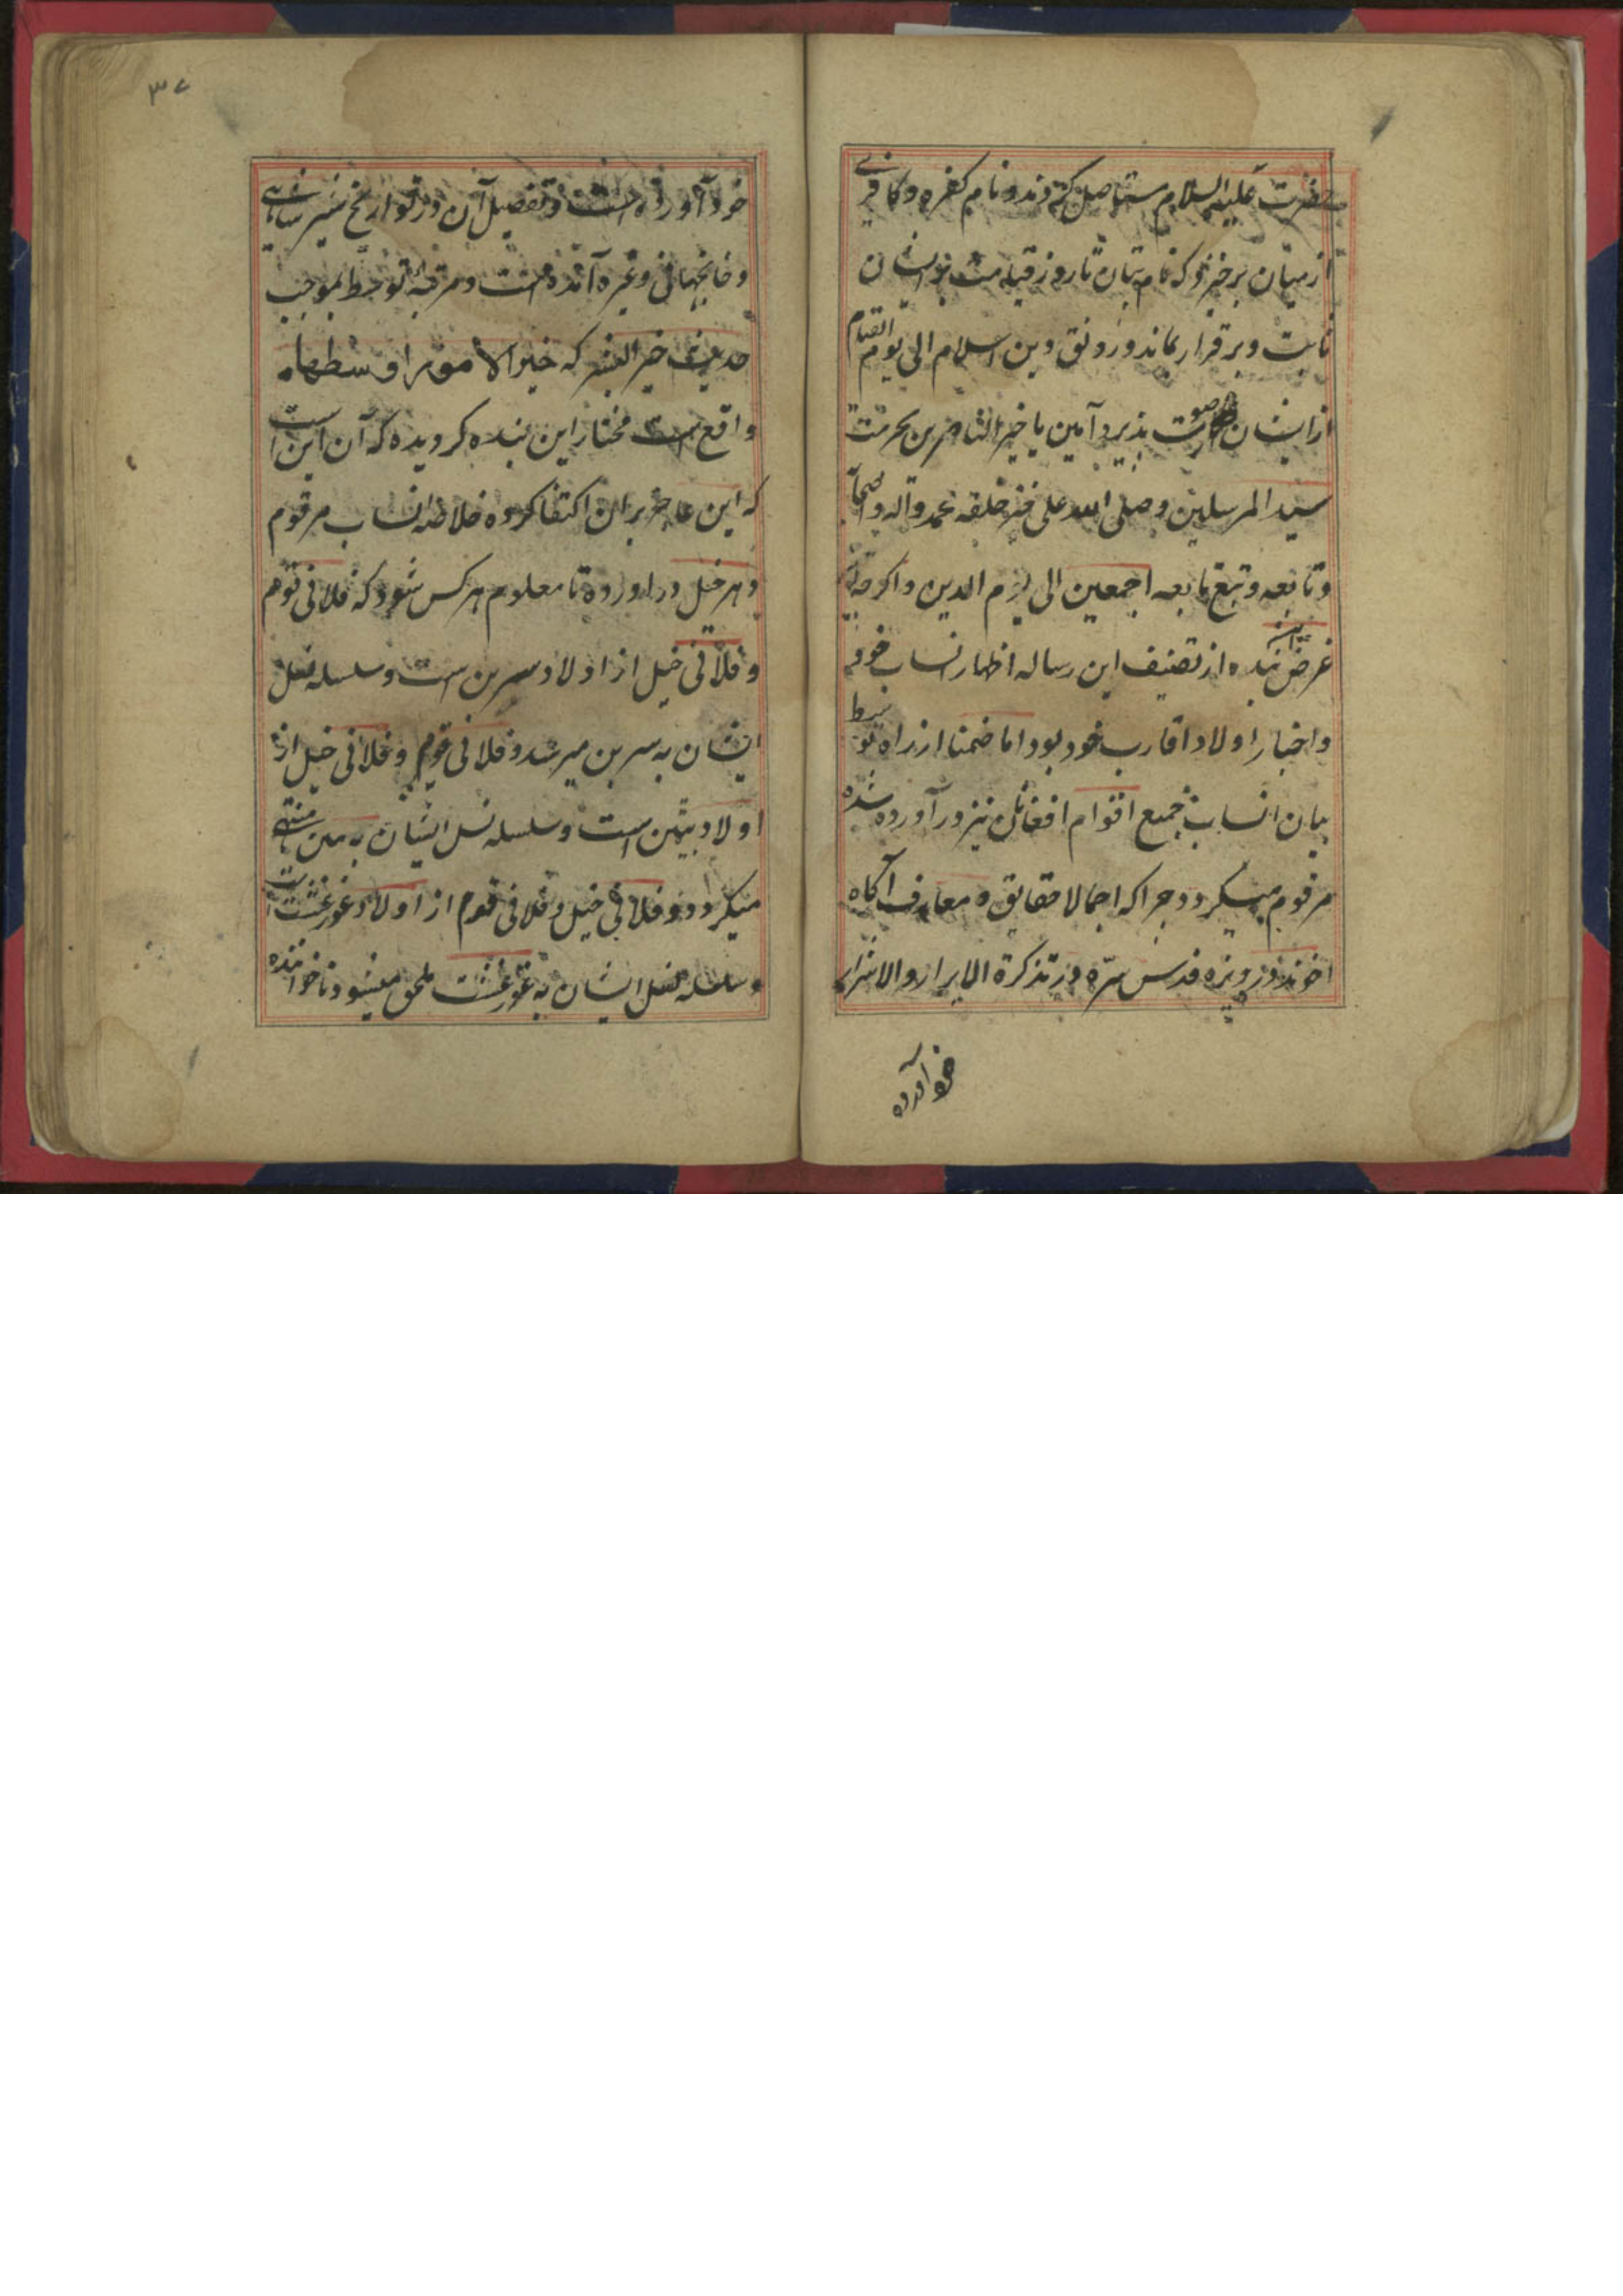 حضرت علیه السلام مستاصل کردند و نام کفره و کافری
از میان برخیزد که نام بتان تا روز قیامت بنوایشان
ثابت و برقرار بماند و رونق دین اسلام الی یوم القیام
از ایشان صورت پذیرد آمین یا خیر الناصرین بحرمت
سید المرسلین و صلی الله علی خیر خلقه محمد و آله و اصحابه
و تابعه و تبع تابعه اجمعین الی یوم الدین و اگرچه
غرض این بنده از تصنیف این رساله اظهار نساب خود
و اخبار اولاد و اقارب خود بود اما ضمنا از راه توسط
بیان انساب جمیع اقوام افغانان نیز در آورده شده
مرقوم میگردد چرا که اجمالا حقایق و معارف آگاه
اخوند درویزه قدس سره در تذکرة الابرار و الاشرار
خود آورده
۳۷
خود آورده است و تفصیل آن در تواریخ شیر شاهی
و خانجهانی و غیره آمده است و مرتبه توسط بموجب
حدیث خیر البشر که خیر الامور اوسطها
واقع است مختار این بنده گردیده که آن این است
که این عاجز بران اکتفا کرده خلاصه انساب هر قوم
و هر خیل در آورده تا معلوم هر کس شود که فلانی قوم
و فلانی خیل از اولاد سربن است و سلسله نسل
ایشان به سربن میرسد و فلانی قوم و فلانی خیل از
اولاد بتین است و سلسله نسل ایشان به بتین منتهی
میگردد و فلانی خیل و فلانی قوم از اولاد غورغشت است
و سلسله نسل ایشان به غورغشت ملحق میشود تا خواننده